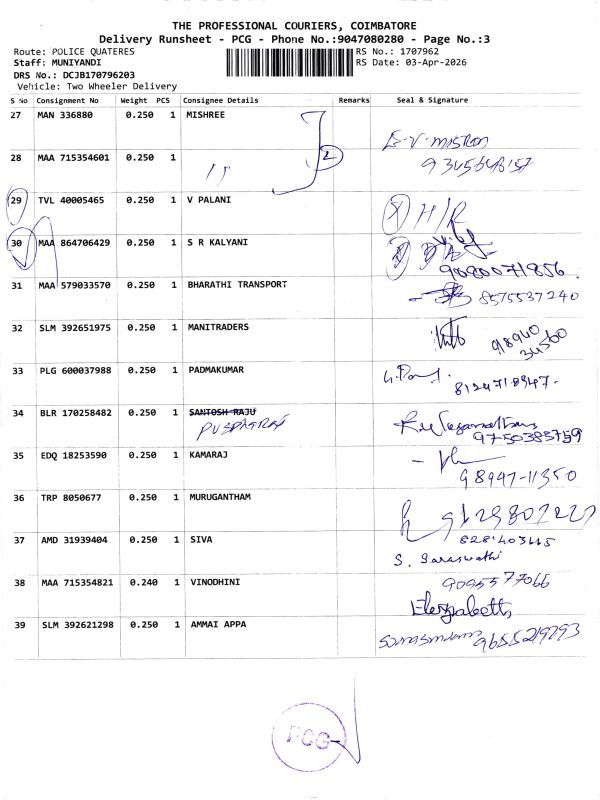 THE PROFESSIONAL COURIERS, COIMBATORE
Delivery Runsheet - PCG - Phone No.:9047080280 - Page No.:3
Route: POLICE QUATERES RS No.: 1707962
Staff: MUNIYANDI RS Date: 03-Apr-2026
DRS No.: DCJB170796203
Vehicle: Two Wheeler Delivery
S No Consignment No Weight PCS Consignee Details Remarks Seal & Signature
27 MAN 336880 0.250 1 MISHREE
28 MAA 715354601 0.250 1 2
29 TVL 40005465 0.250 1 V PALANI H/R
30 MAA 864706429 0.250 1 S R KALYANI
9080071856
31 MAA 579033570 0.250 1 BHARATHI TRANSPORT 8575537240
32 SLM 392651975 0.250 1 MANITRADERS
98940
34560
33 PLG 600037988 0.250 1 PADMAKUMAR
34 BLR 170258482 0.250 1 SANTOSH RAJU
9750383759
35 EDQ 18253590 0.250 1 KAMARAJ
98947-11350
36 TRP 8050677 0.250 1 MURUGANTHAM
37 AMD 31939404 0.250 1 SIVA
S. Saraswathi
38 MAA 715354821 0.240 1 VINODHINI 9095577066
39 SLM 392621298 0.250 1 AMMAI APPA 9655219293
PCG